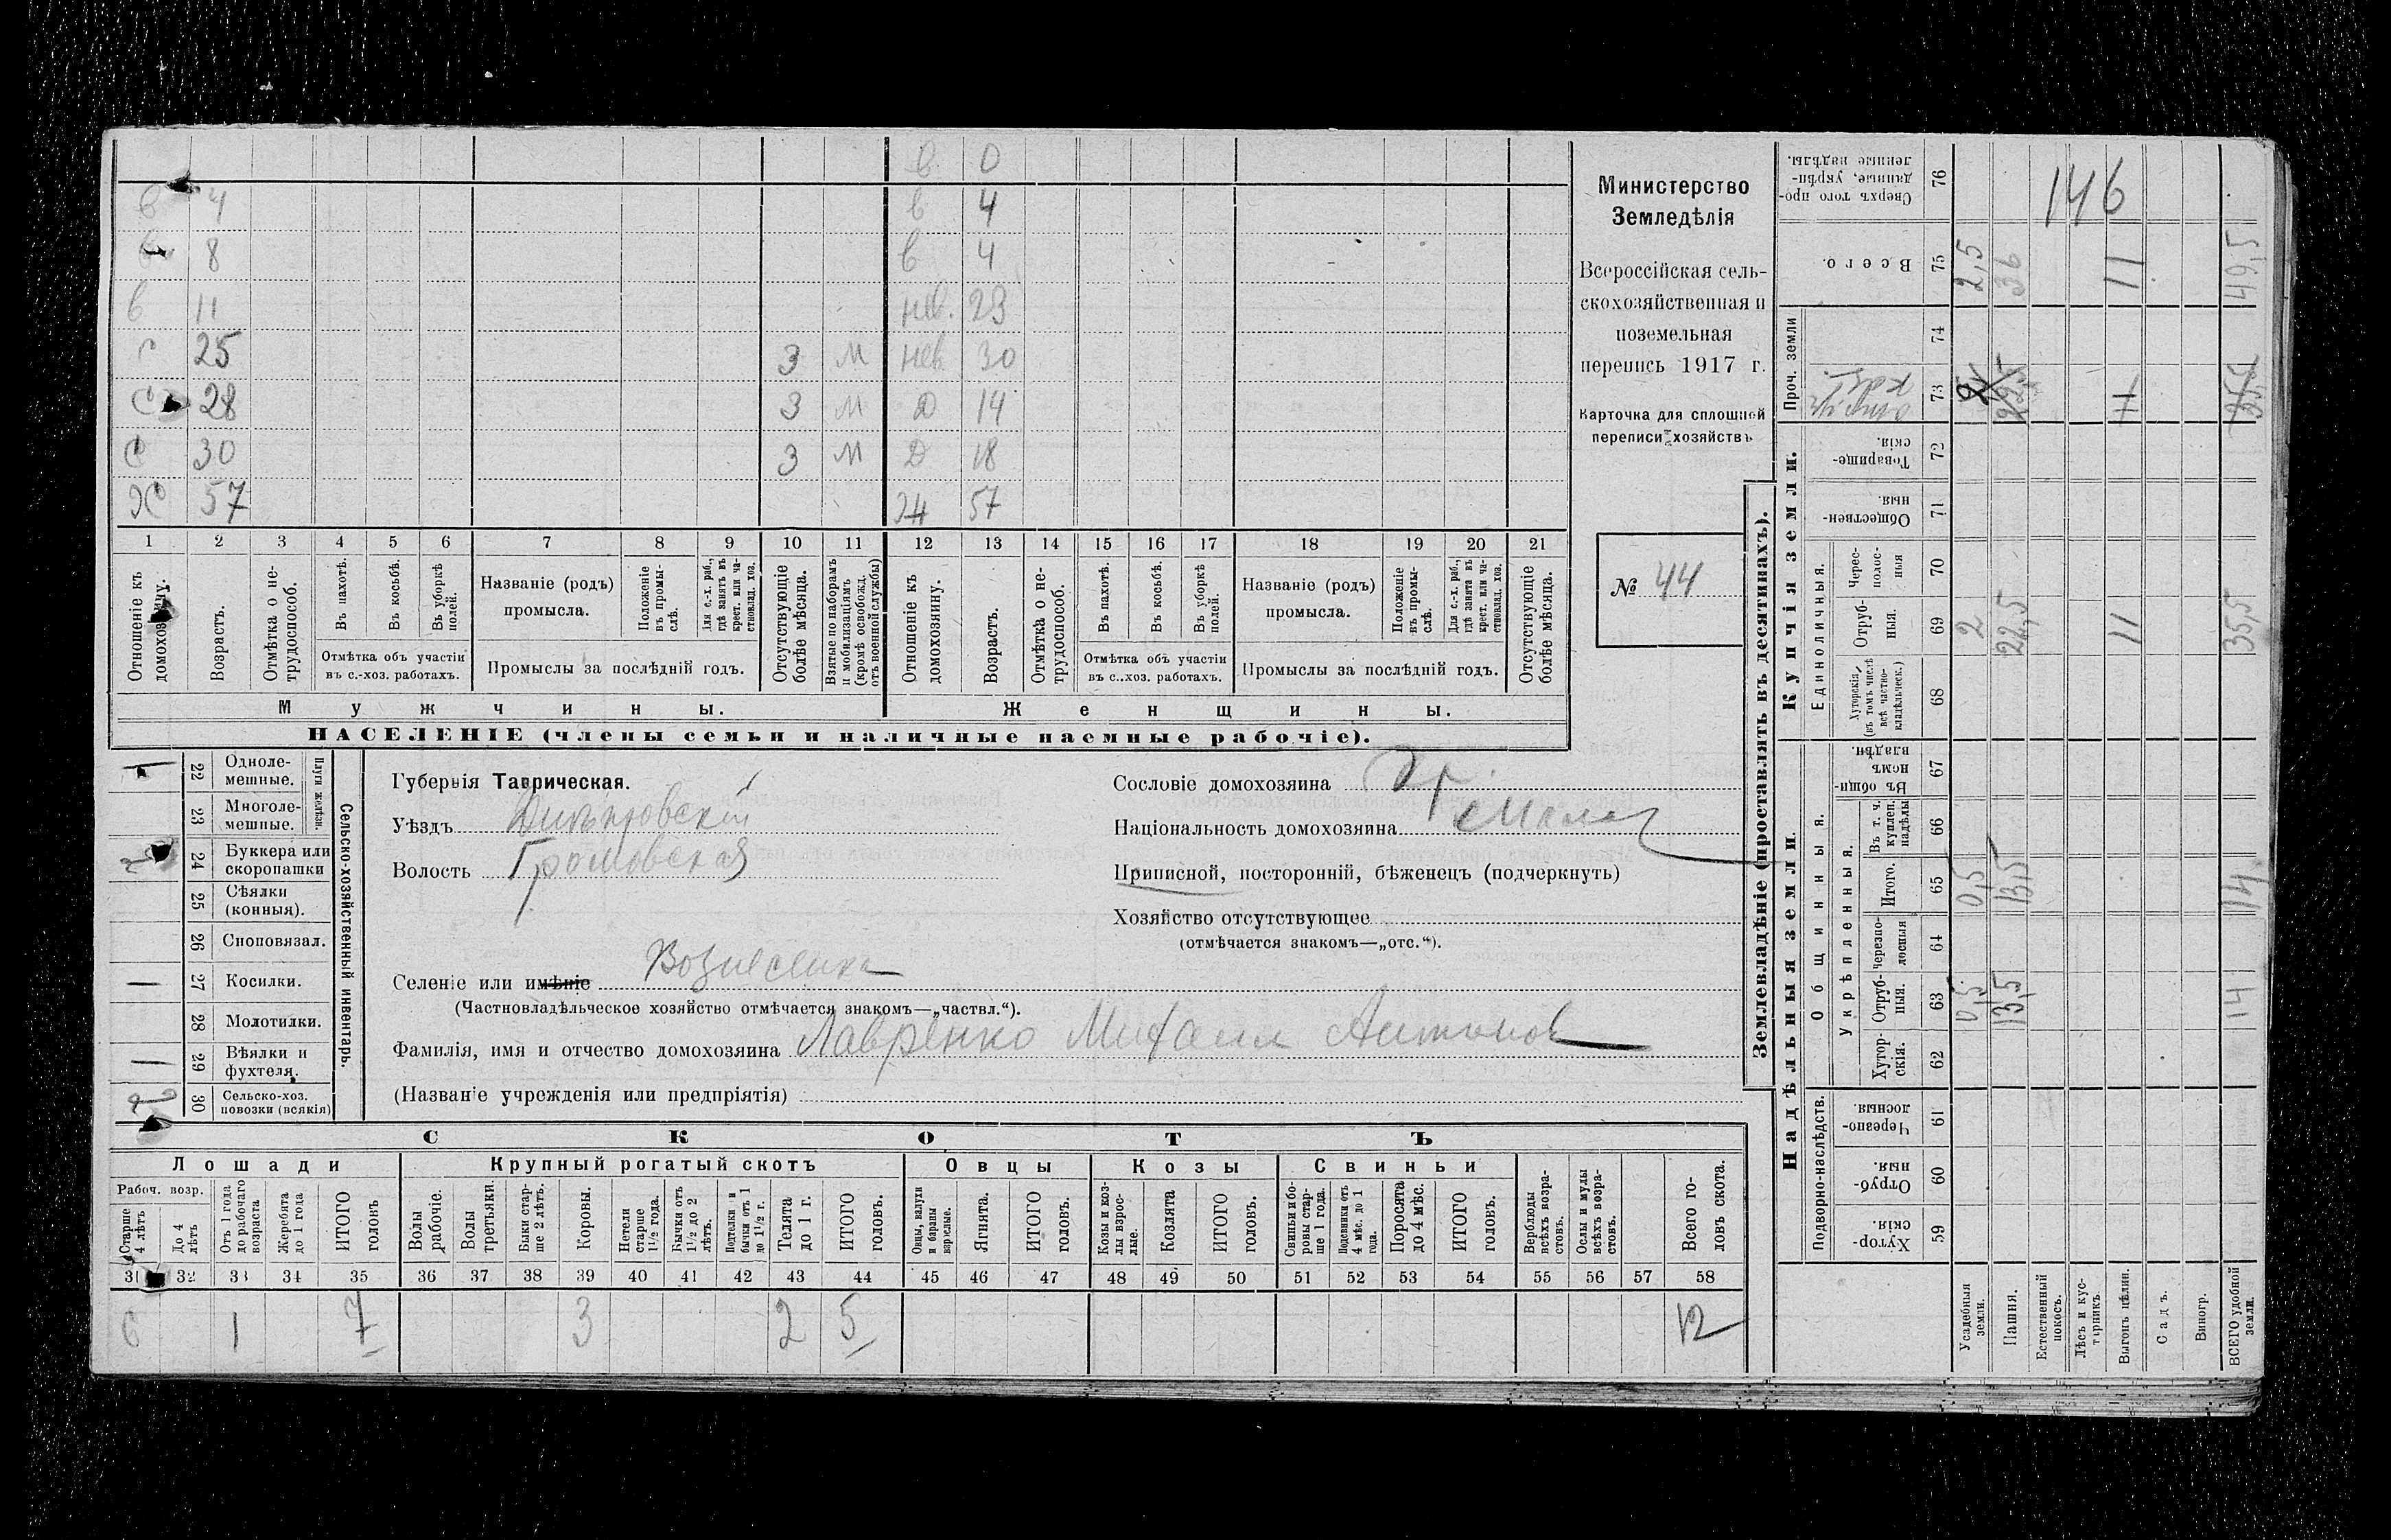 в 0
в 4 в 4
в 8 в 4
в 11 нев. 23
с 25 3 м нев 30
с 28 3 м д 14
с 30 3 м д 18
х 57 ж 57
1 2 3 4 5 6 7 8 9 10 11 12 13 14 15 16 17 18 19 20 21
Отношеніе къ домохозяину.
Возрастъ.
Отмѣтка о не-трудоспособ.
Въ пахотѣ.
Въ косьбѣ.
Въ уборкѣ полей.
Отмѣтка объ участіи
въ с.-хоз. работахъ.
Названіе (родъ)
промысла.
Положеніе въ промы-слѣ.
Для с.-х. раб., гдѣ занятъ въ крест. или ча-стновлад. хоз.
Промыслы за послѣдній годъ.
Отсутствующіе болѣе мѣсяца.
Взятые по наборамъ и мобилизаціямъ (кромѣ освобожд. отъ военной службы)
Отношеніе къ домохозяину.
Возрастъ.
Отмѣтка о не-трудоспособ.
Въ пахотѣ.
Въ косьбѣ.
Въ уборкѣ полей.
Отмѣтка объ участіи
въ с..хоз. работахъ.
Названіе (родъ)
промысла.
Положеніе въ промы-слѣ.
Для с.-х. раб., гдѣ занята въ крест. или ча-стновлад. хоз.
Промыслы за послѣдній годъ.
Отсутствующіе болѣе мѣсяца.
Мужчины.
Женщины.
НАСЕЛЕНІЕ (члены семьи и наличные наемные рабочіе).
Министерство
Земледѣлія
Всероссійская сель-
скохозяйственная и
поземельная
перепись 1917 г.
Карточка для сплошной
переписи хозяйствъ
№ 44
1 22 Одноле-мешные.
23 Многоле-мешные.
Плуги желѣзн.
2 24 Буккера или скоропашки
25 Сѣялки (конныя).
26 Сноповязал.
1 27 Косилки.
28 Молотилки.
1 29 Вѣялки и фухтеля.
2 30 Сельско-хоз. повозки (всякія)
Сельско-хозяйственный инвентарь.
Губернія Таврическая.
Уѣздъ Днѣпровскій
Волость Громовская
Селеніе или имѣніе Вознесенка
(Частновладѣльческое хозяйство отмѣчается знакомъ—„частвл.“).
Фамилія, имя и отчество домохозяина Лавренко Михаил Антонов
(Названіе учрежденія или предпріятія)
Сословіе домохозяина
Національность домохозяина Мало
Приписной, посторонній, бѣженецъ (подчеркнуть)
Хозяйство отсутствующее
(отмѣчается знакомъ—„отс.“).
СКОТЪ
Лошади
Крупный рогатый скотъ
Овцы
Козы
Свиньи
Рабоч. возр.
Старше 4 лѣтъ
До 4 лѣтъ
Отъ 1 года до рабочаго возраста
Жеребята до 1 года
ИТОГО головъ
Волы рабочіе.
Волы третьяки.
Быки стар-ше 2 лѣтъ.
Коровы.
Нетели старше 1½ года.
Бычки отъ 1½ до 2 лѣтъ.
Подтелки и бычки отъ 1 до 1½ г.
Телята до 1 г.
ИТОГО головъ.
Овцы, валухи и бараны взрослые.
Ягнята.
ИТОГО головъ.
Козы и коз-лы взрос-лые.
Козлята
ИТОГО головъ.
Свиньи и бо-ровы стар-ше 1 года.
Подсвинки отъ 4 мѣс. до 1 года.
Поросята до 4 мѣс.
ИТОГО головъ.
Верблюды всѣхъ возра-стовъ.
Ослы и мулы всѣхъ возра-стовъ.
Всего го-ловъ скота.
31 32 33 34 35 36 37 38 39 40 41 42 43 44 45 46 47 48 49 50 51 52 53 54 55 56 57 58
6 1 7 3 2 5 12
Землевладѣніе (проставлять въ десятинахъ).
Купчія земли.
Надѣльныя земли.
Проч. земли
Единоличныя.
Общинныя.
Укрѣпленныя.
Подворно-наслѣдств.
Сверхъ того про-данные, укрѣп-ленные надѣлы. 76 146
Всего. 75 2,5 36 11 49,5
74
73 11
Товарище-скія. 72
Обществен-ныя. 71
Черес-полос-ныя 70
Отруб-ныя. 69 2 22,5 11 35,5
Хуторскія (въ томъ числѣ всѣ частно-владѣльческ.) 68
Въ общин-номъ владѣн. 67
Въ т. ч. куплен. надѣлы 66
Итого. 65 0,5 13,5 14
Черезпо-лосныя 64
Отруб-ныя. 63 0,5 13,5 14
Хутор-скія. 62
Черезпо-лосныя. 61
Отруб-ныя. 60
Хутор-скія. 59
Усадебныя земли.
Пашня.
Естественный покосъ.
Лѣсъ и кус-тарникъ.
Выгонъ цѣлин.
Садъ.
Виногр.
ВСЕГО удобной земли.